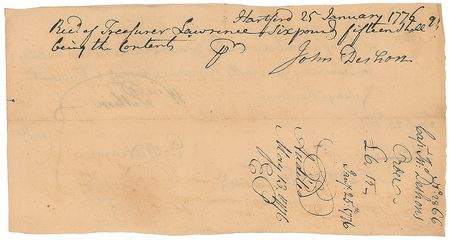 Hartford 25 January 1776
Recd of Treasurer Lawrence Six pound fifteen Shills
being the Contents
pr John Deshon
No 2366
Capt Jn Deshons
Order
£6. 15
Jany 25th 1776
Audits
May 13. 1776